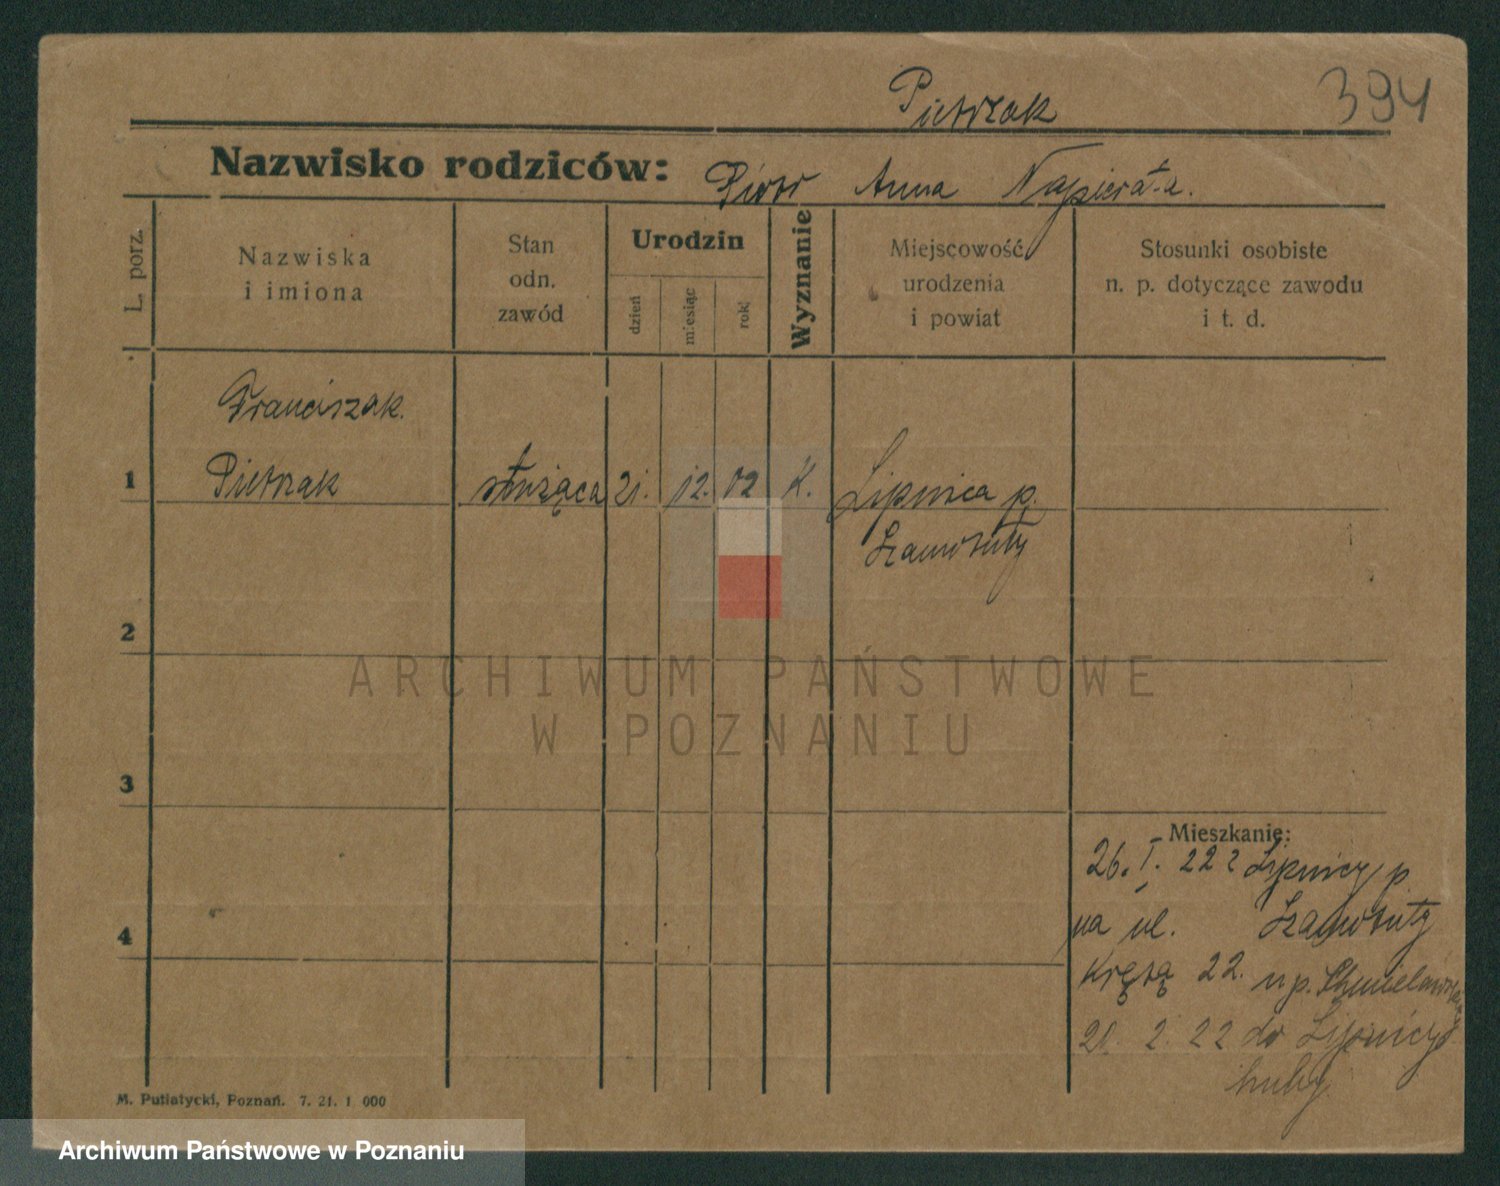 Pietrzak
394
Nazwisko rodziców: Piotr Anna Napierała.
L. porz.
Nazwiska
i imiona
Stan
odn.
zawód
Urodzin
dzień
miesiąc
rok
Wyznanie
Miejscowość
urodzenia
i powiat
Stosunki osobiste
n. p. dotyczące zawodu
i t. d.
Franciszak.
1 Pietrzak służąca 21. 12. 02 K. Lipnica p.
Szamotuły
2
3
4
Mieszkanie:
26. I. 22 z Lipnicy p
na ul. Szamotuły
Krętą 22. u p.
21. 2. 22 do Lipnicy
huby
M. Putiatycki, Poznań. 7. 21. 1 000
ARCHIWUM PAŃSTWOWE
W POZNANIU
Archiwum Państwowe w Poznaniu